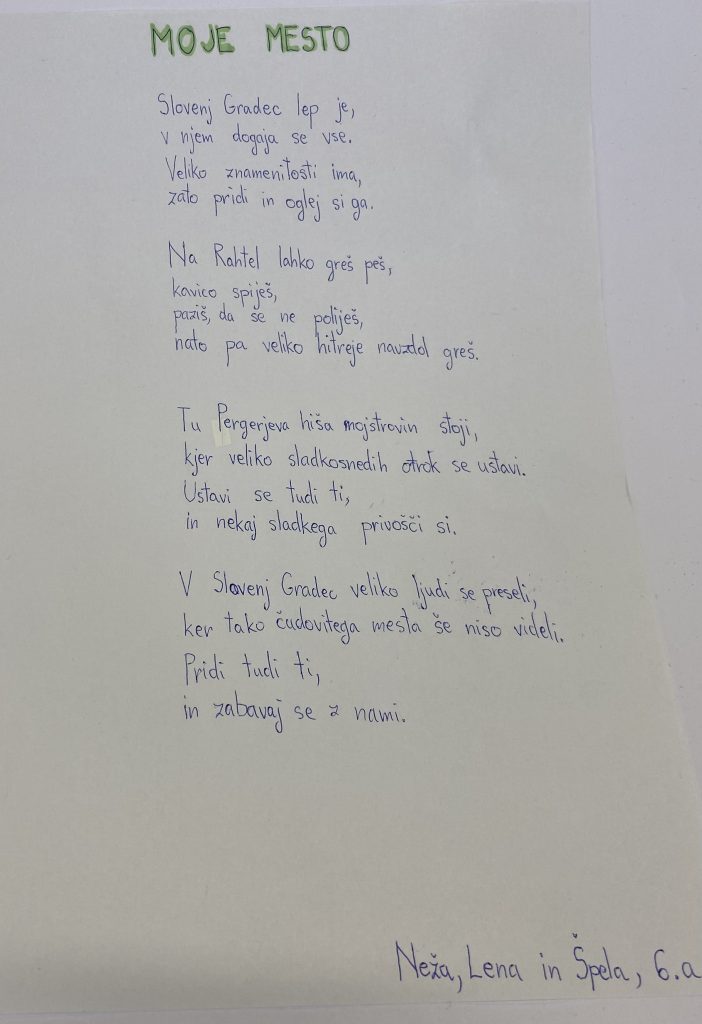 MOJE MESTO
Slovenj Gradec lep je,
v njem dogaja se vse.
Veliko znamenitosti ima,
zato pridi in oglej si ga.
Na Rahtel lahko greš peš,
kavico spiješ,
paziš, da se ne poliješ,
nato pa veliko hitreje navzdol greš.
Tu Pergerjeva hiša mojstrovin stoji,
kjer veliko sladkosnedih otrok se ustavi.
Ustavi se tudi ti,
in nekaj sladkega privošči si.
V Slovenj Gradec veliko ljudi se preseli,
ker tako čudovitega mesta še niso videli.
Pridi tudi ti,
in zabavaj se z nami.
Neža, Lena in Špela, 6.a